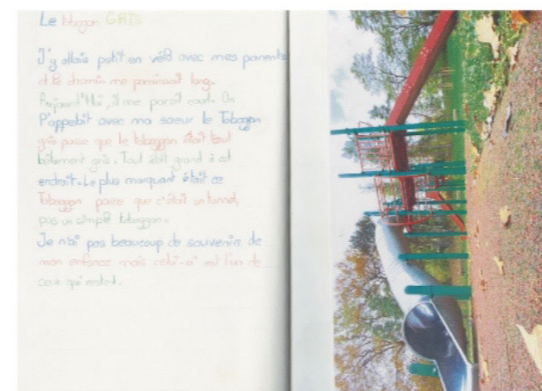 Le toboggan GRIS
J'y allais petit en vélo avec mes parents
et le chemin me paraissait long.
Aujourd'hui, il me parait court. On
l'appelait avec ma soeur le Toboggan
gris parce que le toboggan était tout
bêtement gris. Tout était grand à cet
endroit. Le plus marquant était ce
Toboggan parce que c'était un tunnel,
pas un simple toboggan.
Je n'ai pas beaucoup de souvenirs de
mon enfance mais celui-ci est l'un de
ceux qui restent.